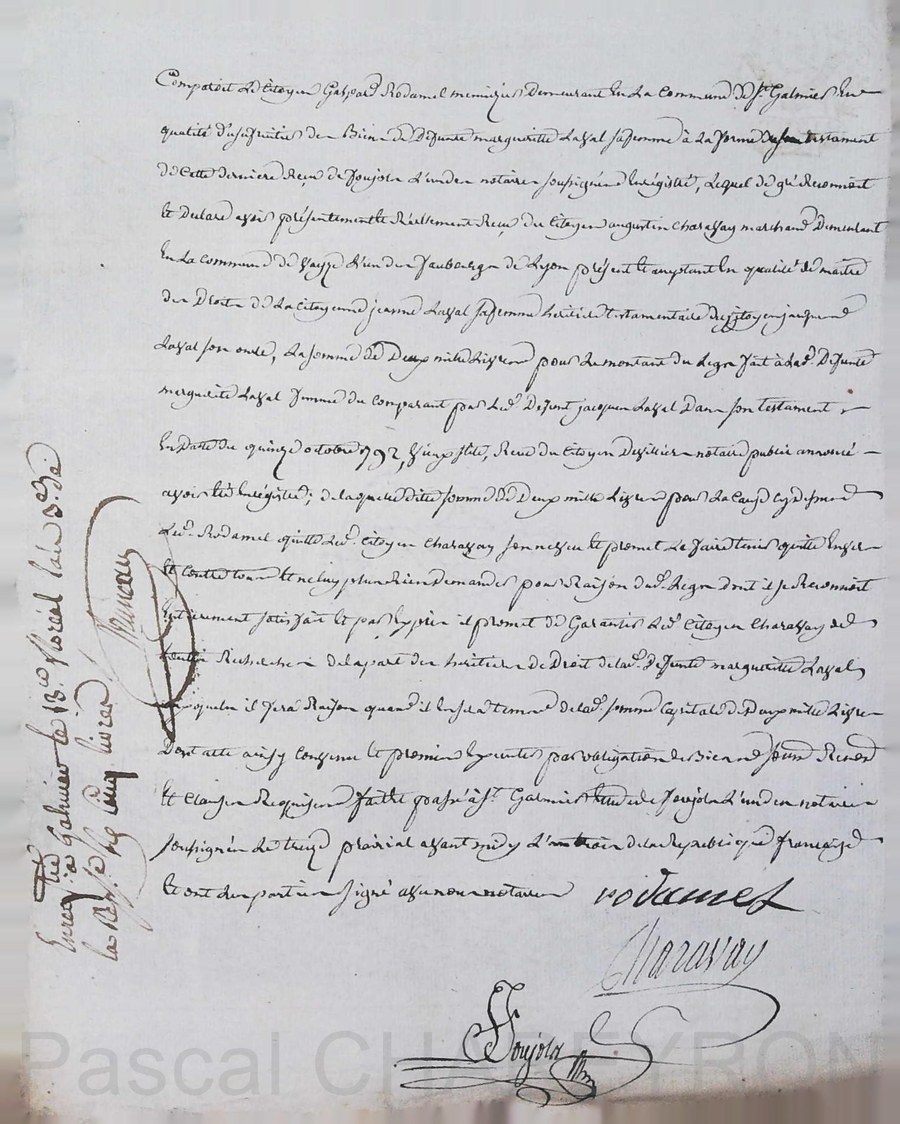 Comparoit Le Citoyen Gaspard Rodamel menuizier Demeurant En La Commune de St. Galmier En
qualité d'usufruitier des Biens de Deffunte margueritte Laval sa femme à La forme du testament
de Cette derniere Reçu de Soujols L'un des notaires soussignés Enregistré, Lequel de gré Reconnoit
Et Declare avoir présentement Et Réellement Reçu du Citoyen augustin Charavay marchand Demeurant
En La commune de Vayze L'un des fauxbourgs de Lyon présent Et acceptant En qualité de maitre
des Droits de La Citoyenne jeanne Laval sa femme héritiere testamentaire du Citoyen jacques
Laval son oncle, La somme de Deux mille Livres pour Le montant du Legs fait à Lad. Defunte
marguerite Laval femme du Comparant par Led. Defunt jacques Laval Dans son testament
En Datte du quinze octobre 1792, Vieux stile, Reçu du Citoyen Devillier notaire public annoncé
avoir été Enregistré; de laquelle ditte somme de Deux mille Livres pour La Cause cy dessus
Led. Rodamel quitte Led. Citoyen Charavay son neveu Et promet Le faire tenir quitte Envers
Et Contre tous Et ne luy plus Rien Demander pour Raison dud. Legs dont il se Reconnoit
Entierement satisfait Et par Exprès il promet de Garantir Led. Citoyen Charavay de
toutes Recherches de la part des héritiers de Droit de lad. Deffunte marguerite Laval
auxquels il fera Raison quand il En sera temps de lad. somme Capitale de Deux mille Livres
Dont acte ainsy Convenu Et promis Executer par obligation de Biens
Et Clauses Requises fait Et passé à St. Galmier Etude de Soujols L'un des notaires
soussignés Le treize prairial avant midy L'an trois de la Republique française
Et ont les parties signé avec nous notaires rodamel
Charavay
Soujols
Enregistré à Galmier le 18.e floréal l'an 3.e
la Rep. cinq livres